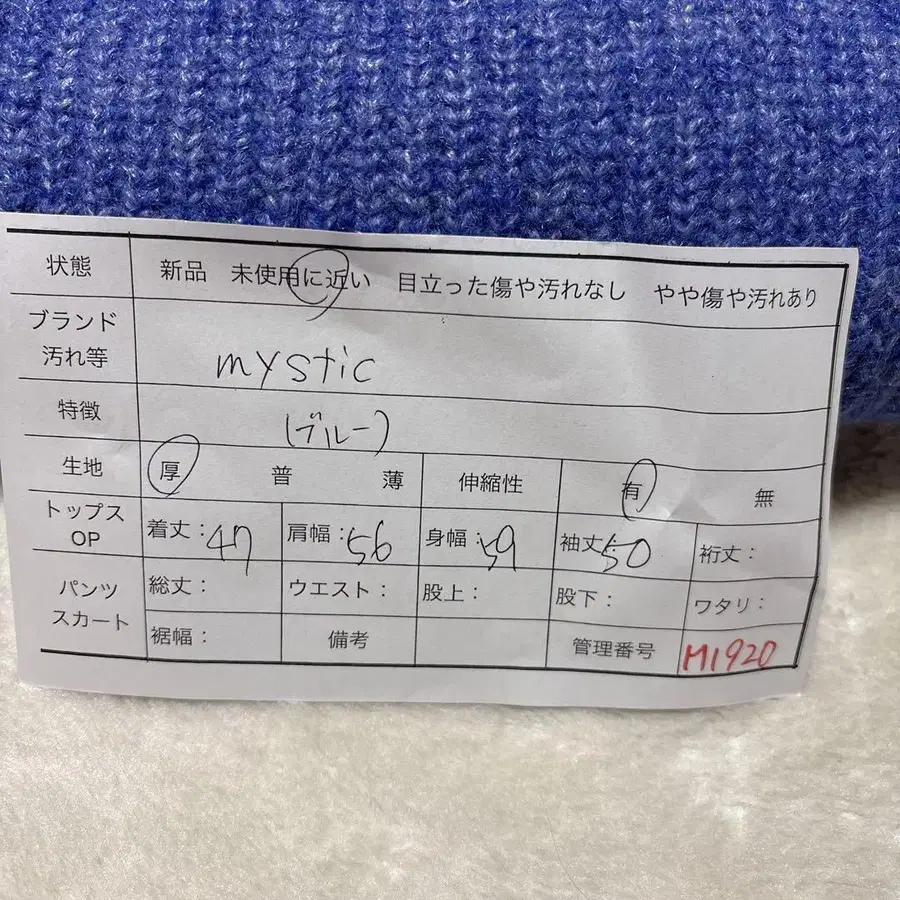 状態 新品 未使用に近い 目立った傷や汚れなし やや傷や汚れあり
ブランド
汚れ等 mystic
特徴 (ブルー)
生地 厚 普 薄 伸縮性 有 無
トップス
OP 着丈:47 肩幅:56 身幅:59 袖丈:50 裄丈:
パンツ
スカート 総丈: ウエスト: 股上: 股下: ワタリ:
裾幅: 備考 管理番号 M1920